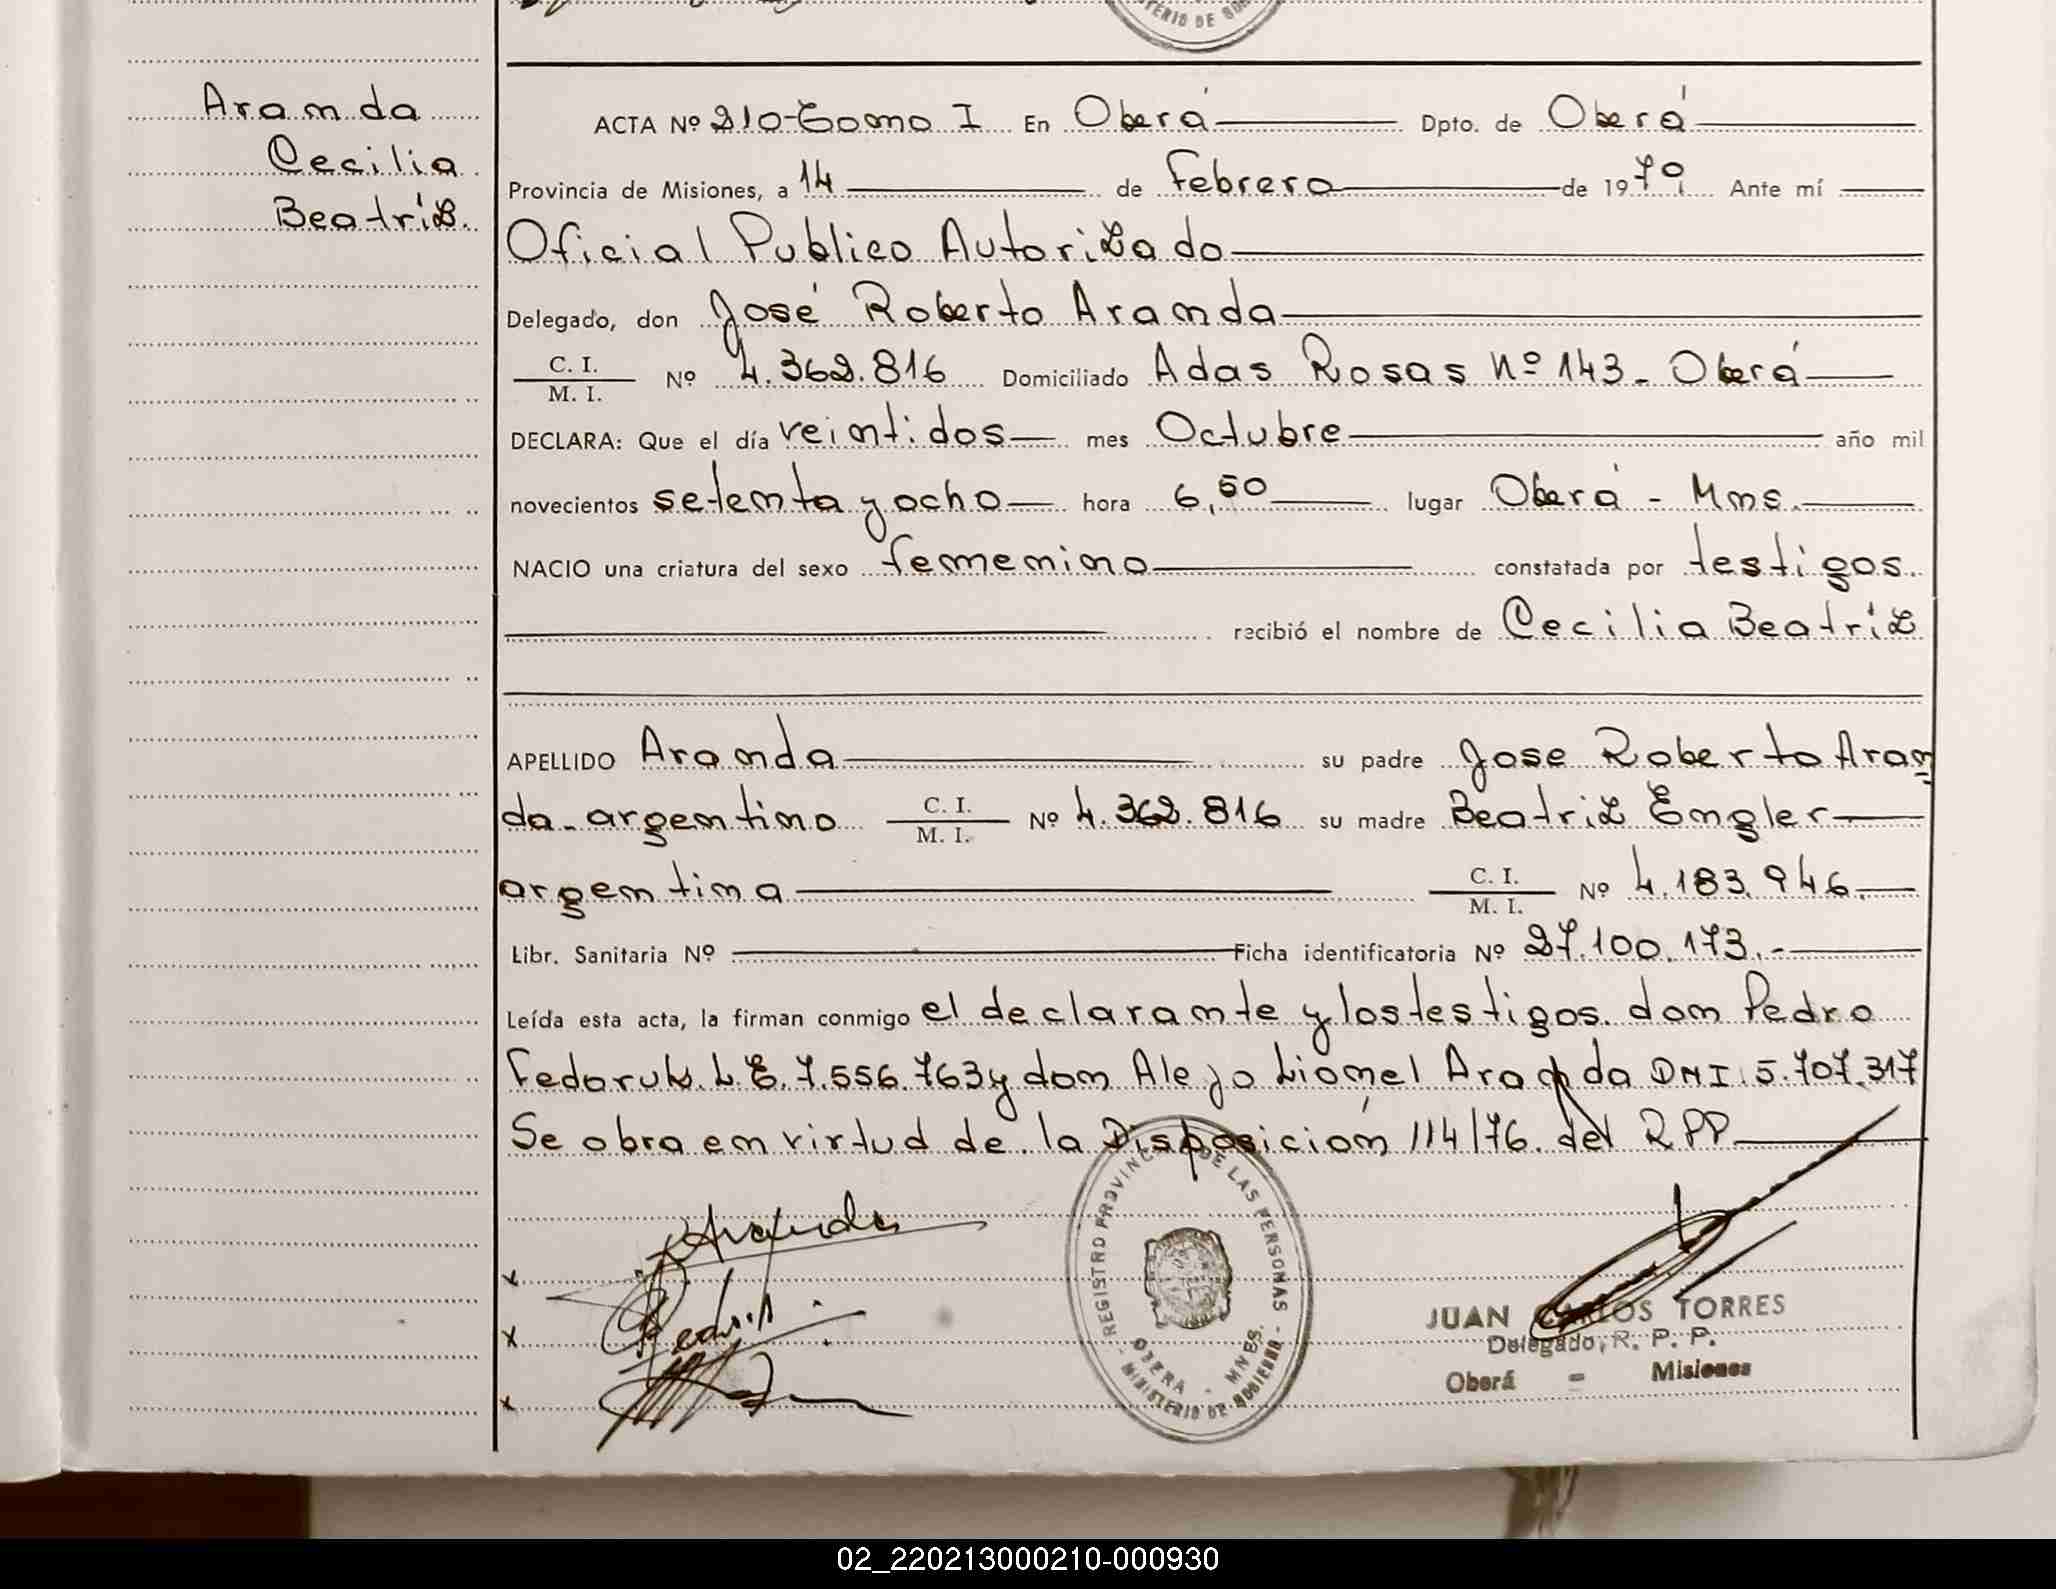 MINISTERIO DE GOB
Aranda
Cecilia
Beatriz.
ACTA Nº 210-Tomo I En Oberá Dpto. de Oberá
Provincia de Misiones, a 14 de Febrero de 1979 Ante mí
Oficial Publico Autorizado
Delegado, don José Roberto Aranda
C. I.
M. I. Nº 4.362.816 Domiciliado Adas Rosas Nº 143- Oberá
DECLARA: Que el día veintidos mes Octubre año mil
novecientos setenta y ocho hora 6,50 lugar Oberá - Mnes.
NACIO una criatura del sexo femenino constatada por testigos
recibió el nombre de Cecilia Beatriz
APELLIDO Aranda su padre Jose Roberto Aran
da- argentino C. I. M. I. Nº 4.362.816 su madre Beatriz Engler
argentina C. I. M. I. Nº 4.183.946.
Libr. Sanitaria Nº Ficha identificatoria Nº 27.100.173.-
Leída esta acta, la firman conmigo el declarante y los testigos. don Pedro
Fedoruk. L.E. 7.556.763 y don Alejo Lionel Aranda DNI 5.707.317
Se obra en virtud de la Disposición 114/76. del RPP
REGISTRO PROVINCIAL DE LAS PERSONAS
OBERA - MNES.
MINISTERIO DE GOBIERNO
JUAN CARLOS TORRES
Delegado, R. P. P.
Oberá - Misiones
02_220213000210-000930